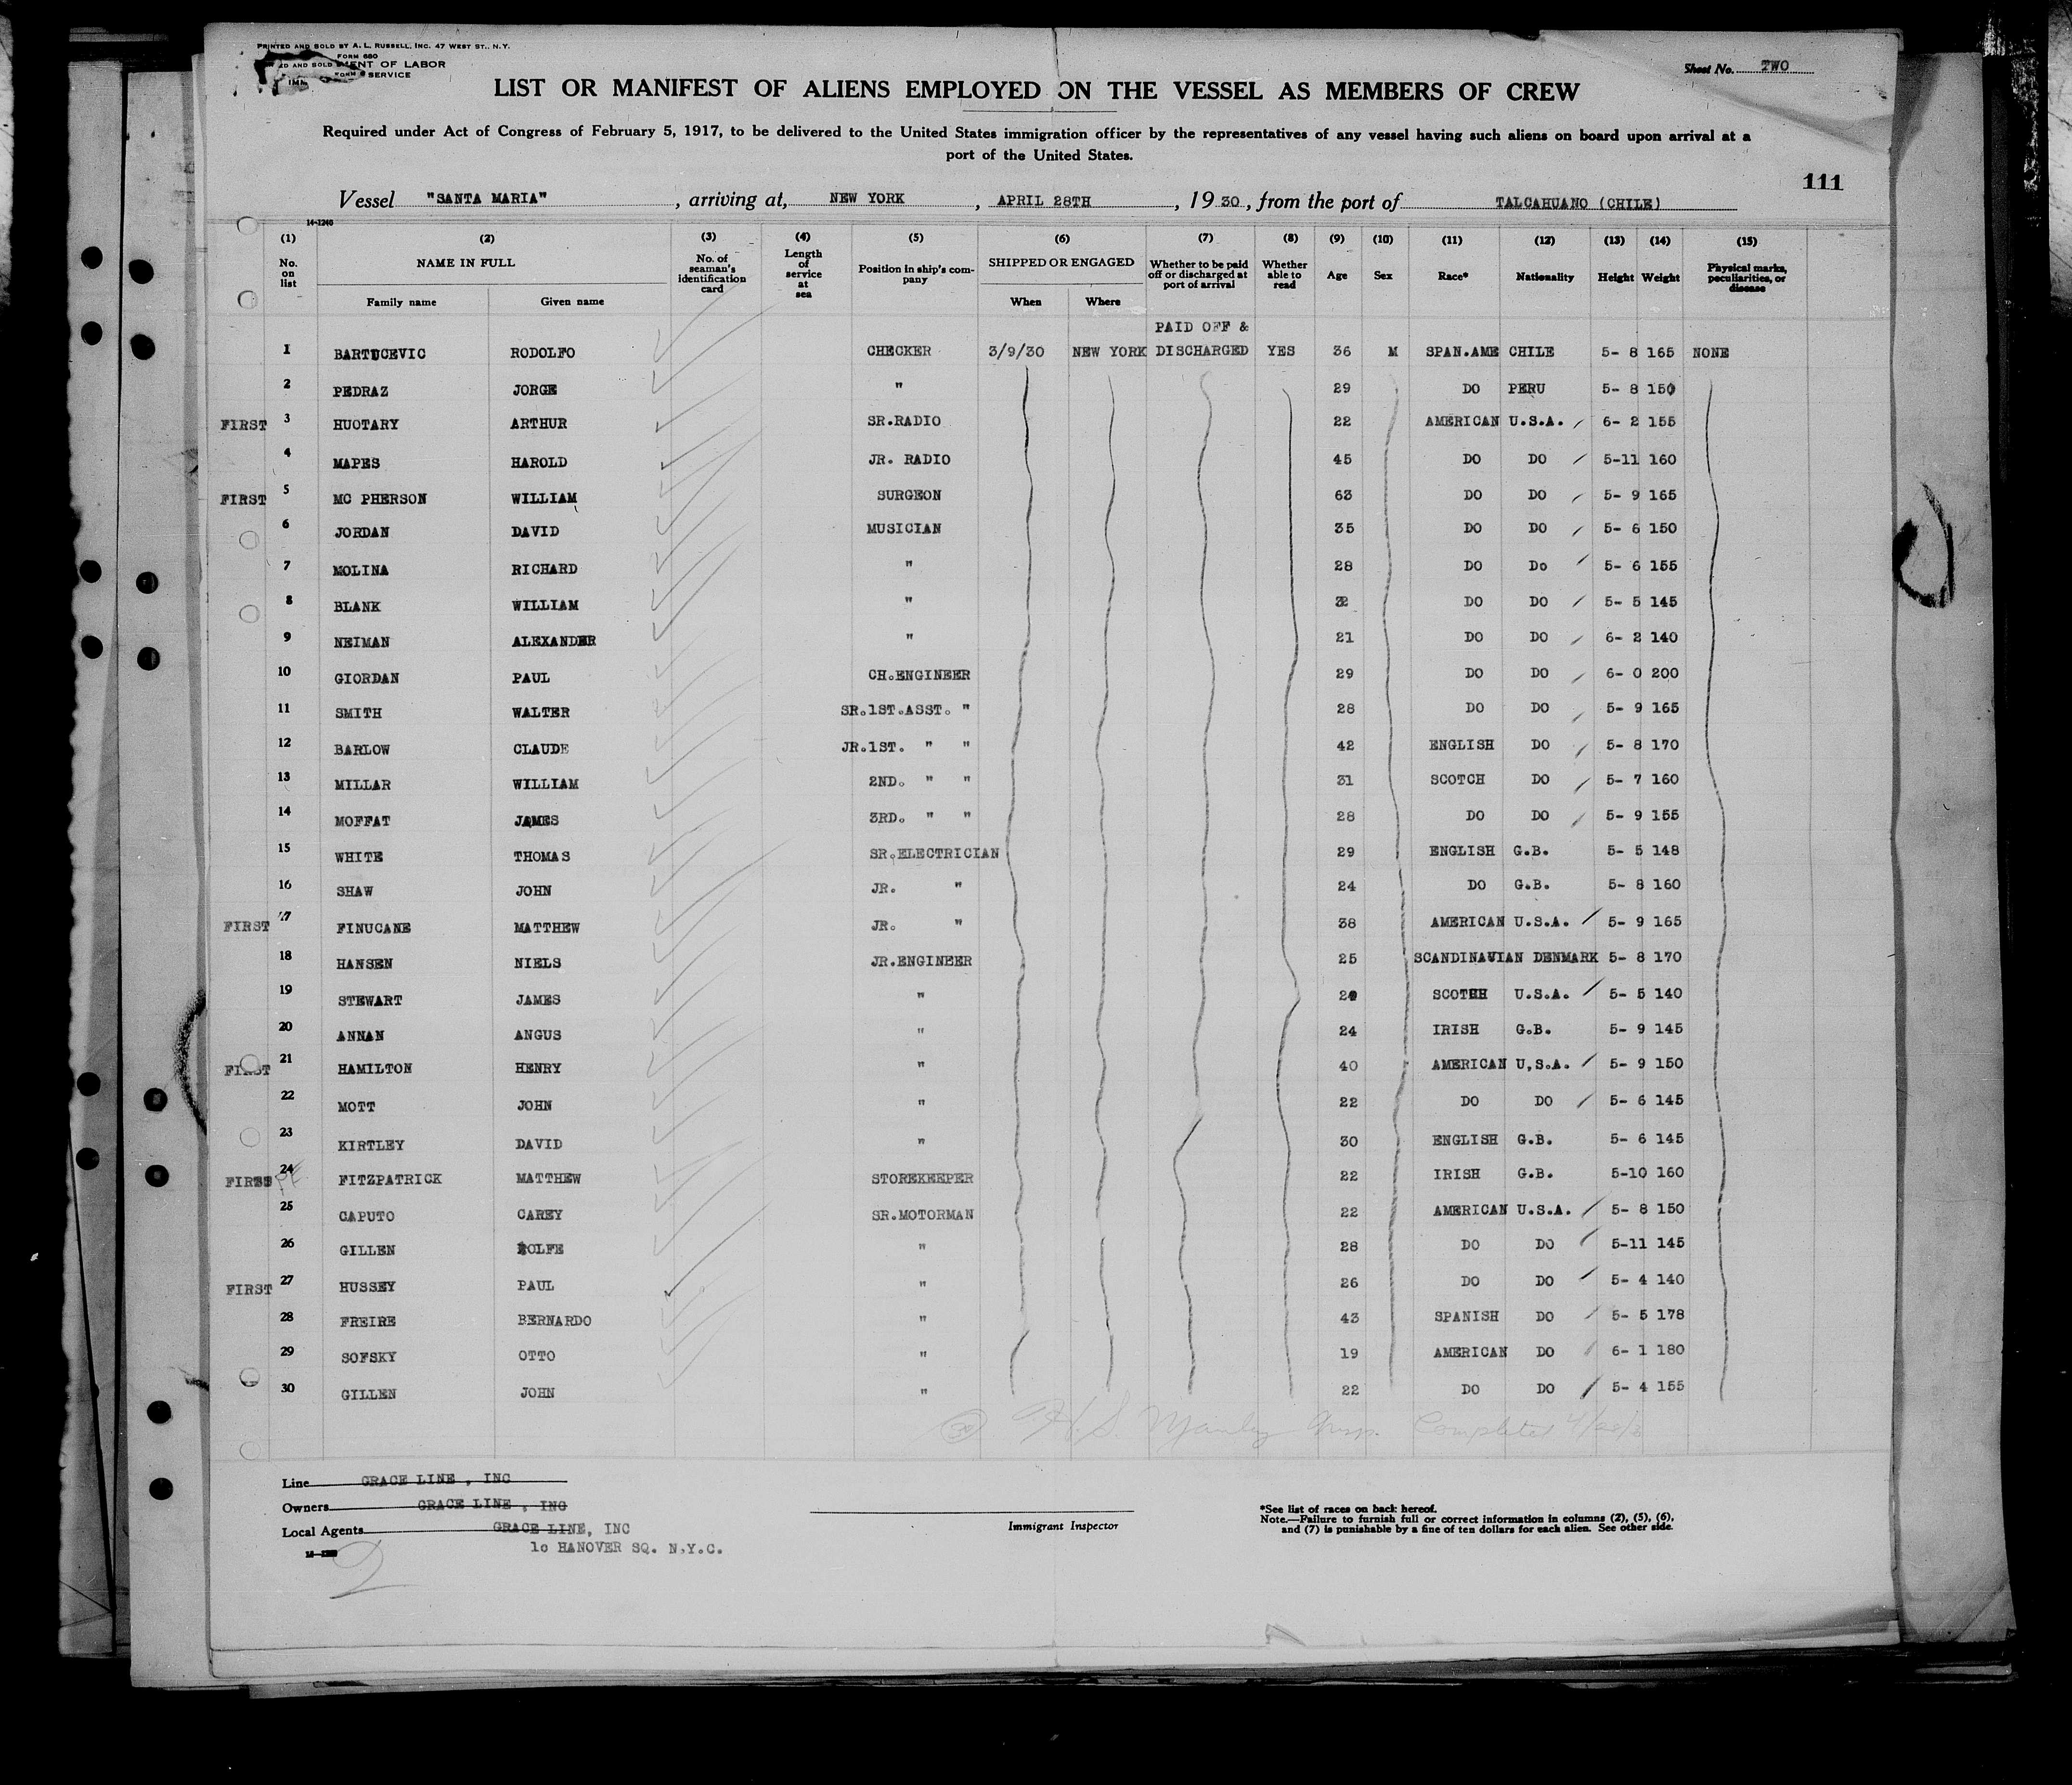 PRINTED AND SOLD BY A. L. RUSSELL, INC. 47 WEST ST., N.Y.
FORM 680
ENT OF LABOR
SERVICE
Sheet No. TWO
LIST OR MANIFEST OF ALIENS EMPLOYED ON THE VESSEL AS MEMBERS OF CREW
Required under Act of Congress of February 5, 1917, to be delivered to the United States immigration officer by the representatives of any vessel having such aliens on board upon arrival at a
port of the United States.
111
Vessel "SANTA MARIA", arriving at, NEW YORK, APRIL 28TH, 1930, from the port of TALCAHUANO (CHILE)
14-1240
(1) (2) (3) (4) (5) (6) (7) (8) (9) (10) (11) (12) (13) (14) (15)
No. on list NAME IN FULL No. of seaman's identification card Length of service at sea Position in ship's company SHIPPED OR ENGAGED Whether to be paid off or discharged at port of arrival Whether able to read Age Sex Race* Nationality Height Weight Physical marks, peculiarities, or disease
Family name Given name When Where
PAID OFF &
1 BARTUCEVIC RODOLFO CHECKER 3/9/30 NEW YORK DISCHARGED YES 36 M SPAN.AME CHILE 5- 8 165 NONE
2 PEDRAZ JORGE " 29 DO PERU 5- 8 150
FIRST 3 HUOTARY ARTHUR SR.RADIO 22 AMERICAN U.S.A. 6- 2 155
4 MAPES HAROLD JR. RADIO 45 DO DO 5-11 160
FIRST 5 MC PHERSON WILLIAM SURGEON 63 DO DO 5- 9 165
6 JORDAN DAVID MUSICIAN 35 DO DO 5- 6 150
7 MOLINA RICHARD " 28 DO Do 5- 6 155
8 BLANK WILLIAM " 32 DO DO 5- 5 145
9 NEIMAN ALEXANDER " 21 DO DO 6- 2 140
10 GIORDAN PAUL CH.ENGINEER 29 DO DO 6- 0 200
11 SMITH WALTER SR.1ST.ASST. " 28 DO DO 5- 9 165
12 BARLOW CLAUDE JR.1ST. " " 42 ENGLISH DO 5- 8 170
13 MILLAR WILLIAM 2ND. " " 31 SCOTCH DO 5- 7 160
14 MOFFAT JAMES 3RD. " " 28 DO DO 5- 9 155
15 WHITE THOMAS SR.ELECTRICIAN 29 ENGLISH G.B. 5- 5 148
16 SHAW JOHN JR. " 24 DO G.B. 5- 8 160
FIRST 17 FINUCANE MATTHEW JR. " 38 AMERICAN U.S.A. 5- 9 165
18 HANSEN NIELS JR.ENGINEER 25 SCANDINAVIAN DENMARK 5- 8 170
19 STEWART JAMES " SCOTHH U.S.A. 5- 5 140
20 ANNAN ANGUS " 24 IRISH G.B. 5- 9 145
FIRST 21 HAMILTON HENRY " 40 AMERICAN U,S.A. 5- 9 150
22 MOTT JOHN " 22 DO DO 5- 6 145
23 KIRTLEY DAVID " 30 ENGLISH G.B. 5- 6 145
FIRST 24 FITZPATRICK MATTHEW STOREKEEPER 22 IRISH G.B. 5-10 160
25 CAPUTO CAREY SR.MOTORMAN 22 AMERICAN U.S.A. 5- 8 150
26 GILLEN ROLFE " 28 DO DO 5-11 145
FIRST 27 HUSSEY PAUL " 26 DO DO 5- 4 140
28 FREIRE BERNARDO " 43 SPANISH DO 5- 5 178
29 SOFSKY OTTO " 19 AMERICAN DO 6- 1 180
30 GILLEN JOHN " 22 DO DO 5- 4 155
30 H.S. Manley Insp. Completed 4/28/3
Line GRACE LINE , INC
Owners GRACE LINE , INC
Local Agents GRACE LINE, INC
1o HANOVER SQ. N.Y.C.
2
Immigrant Inspector
*See list of races on back hereof.
Note.—Failure to furnish full or correct information in columns (2), (5), (6),
and (7) is punishable by a fine of ten dollars for each alien. See other side.